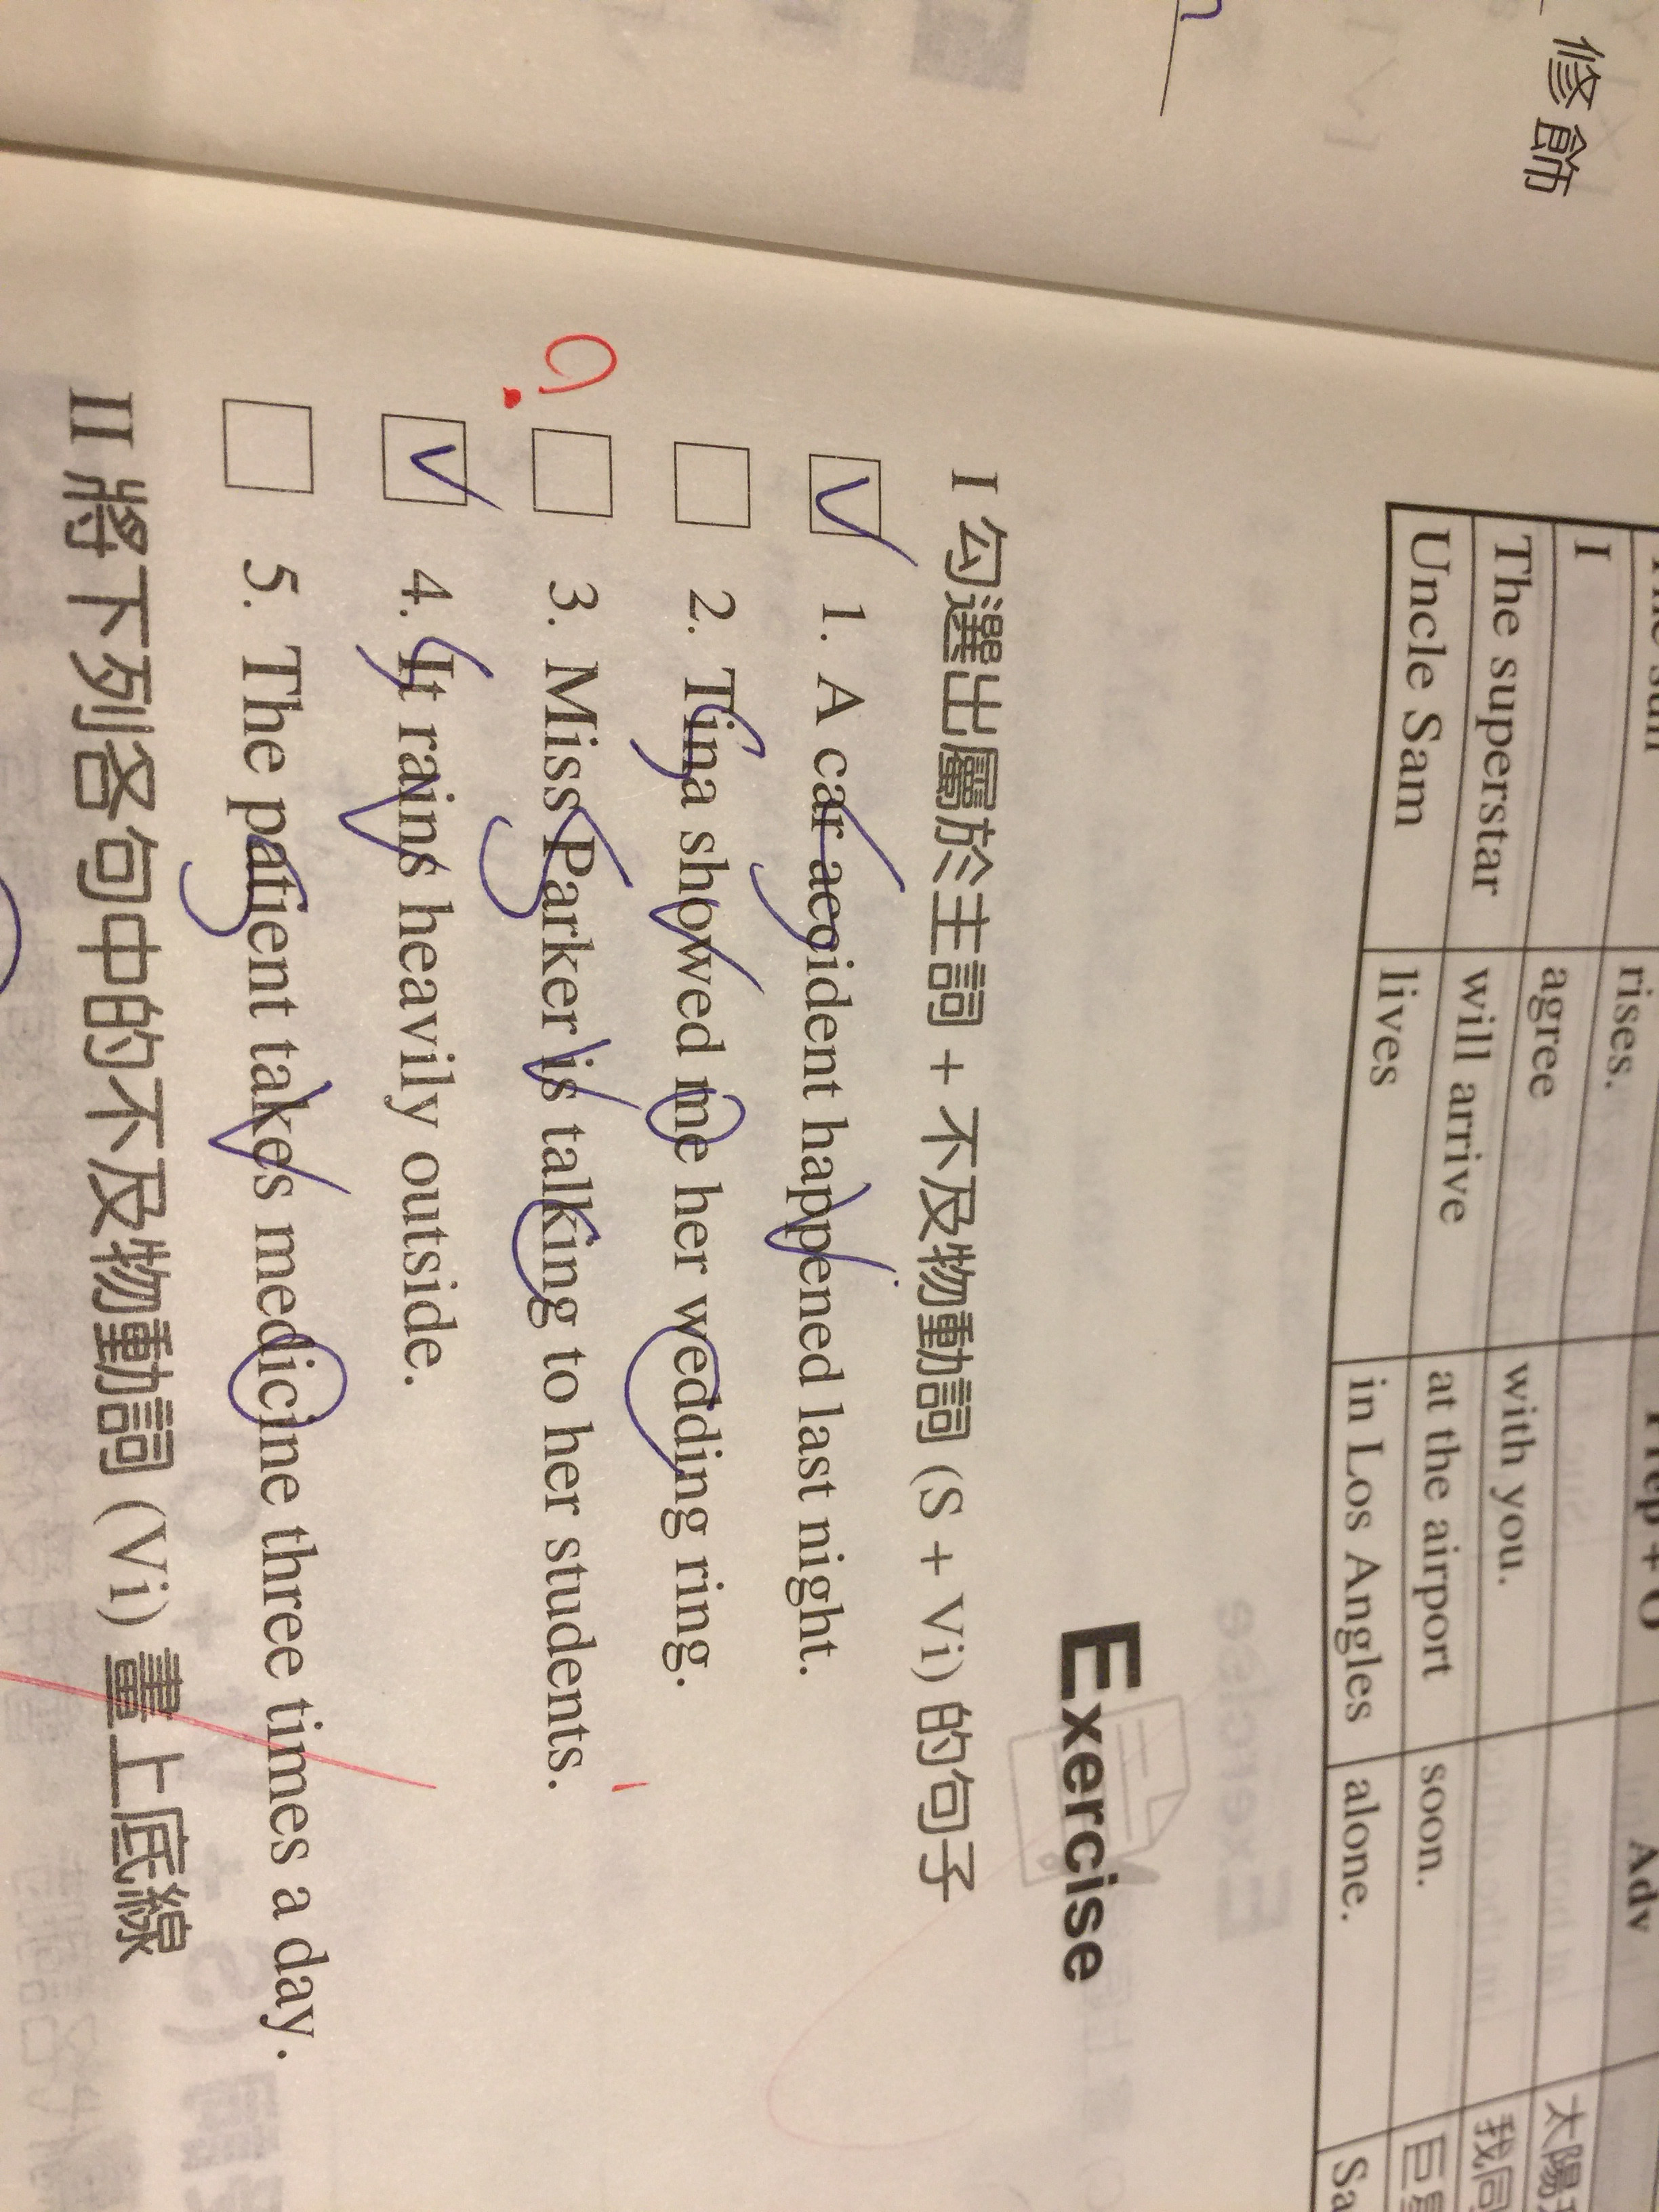 修飾
rises.
I agree with you.
The superstar will arrive at the airport soon.
Uncle Sam lives in Los Angles alone.
Adv
我同
Exercise
I 勾選出屬於主詞 + 不及物動詞 (S + Vi) 的句子
V 1. A car accident happened last night.
2. Tina showed me her wedding ring.
3. Miss Parker is talking to her students.
V 4. It rains heavily outside.
5. The patient takes medicine three times a day.
II 將下列各句中的不及物動詞 (Vi) 畫上底線